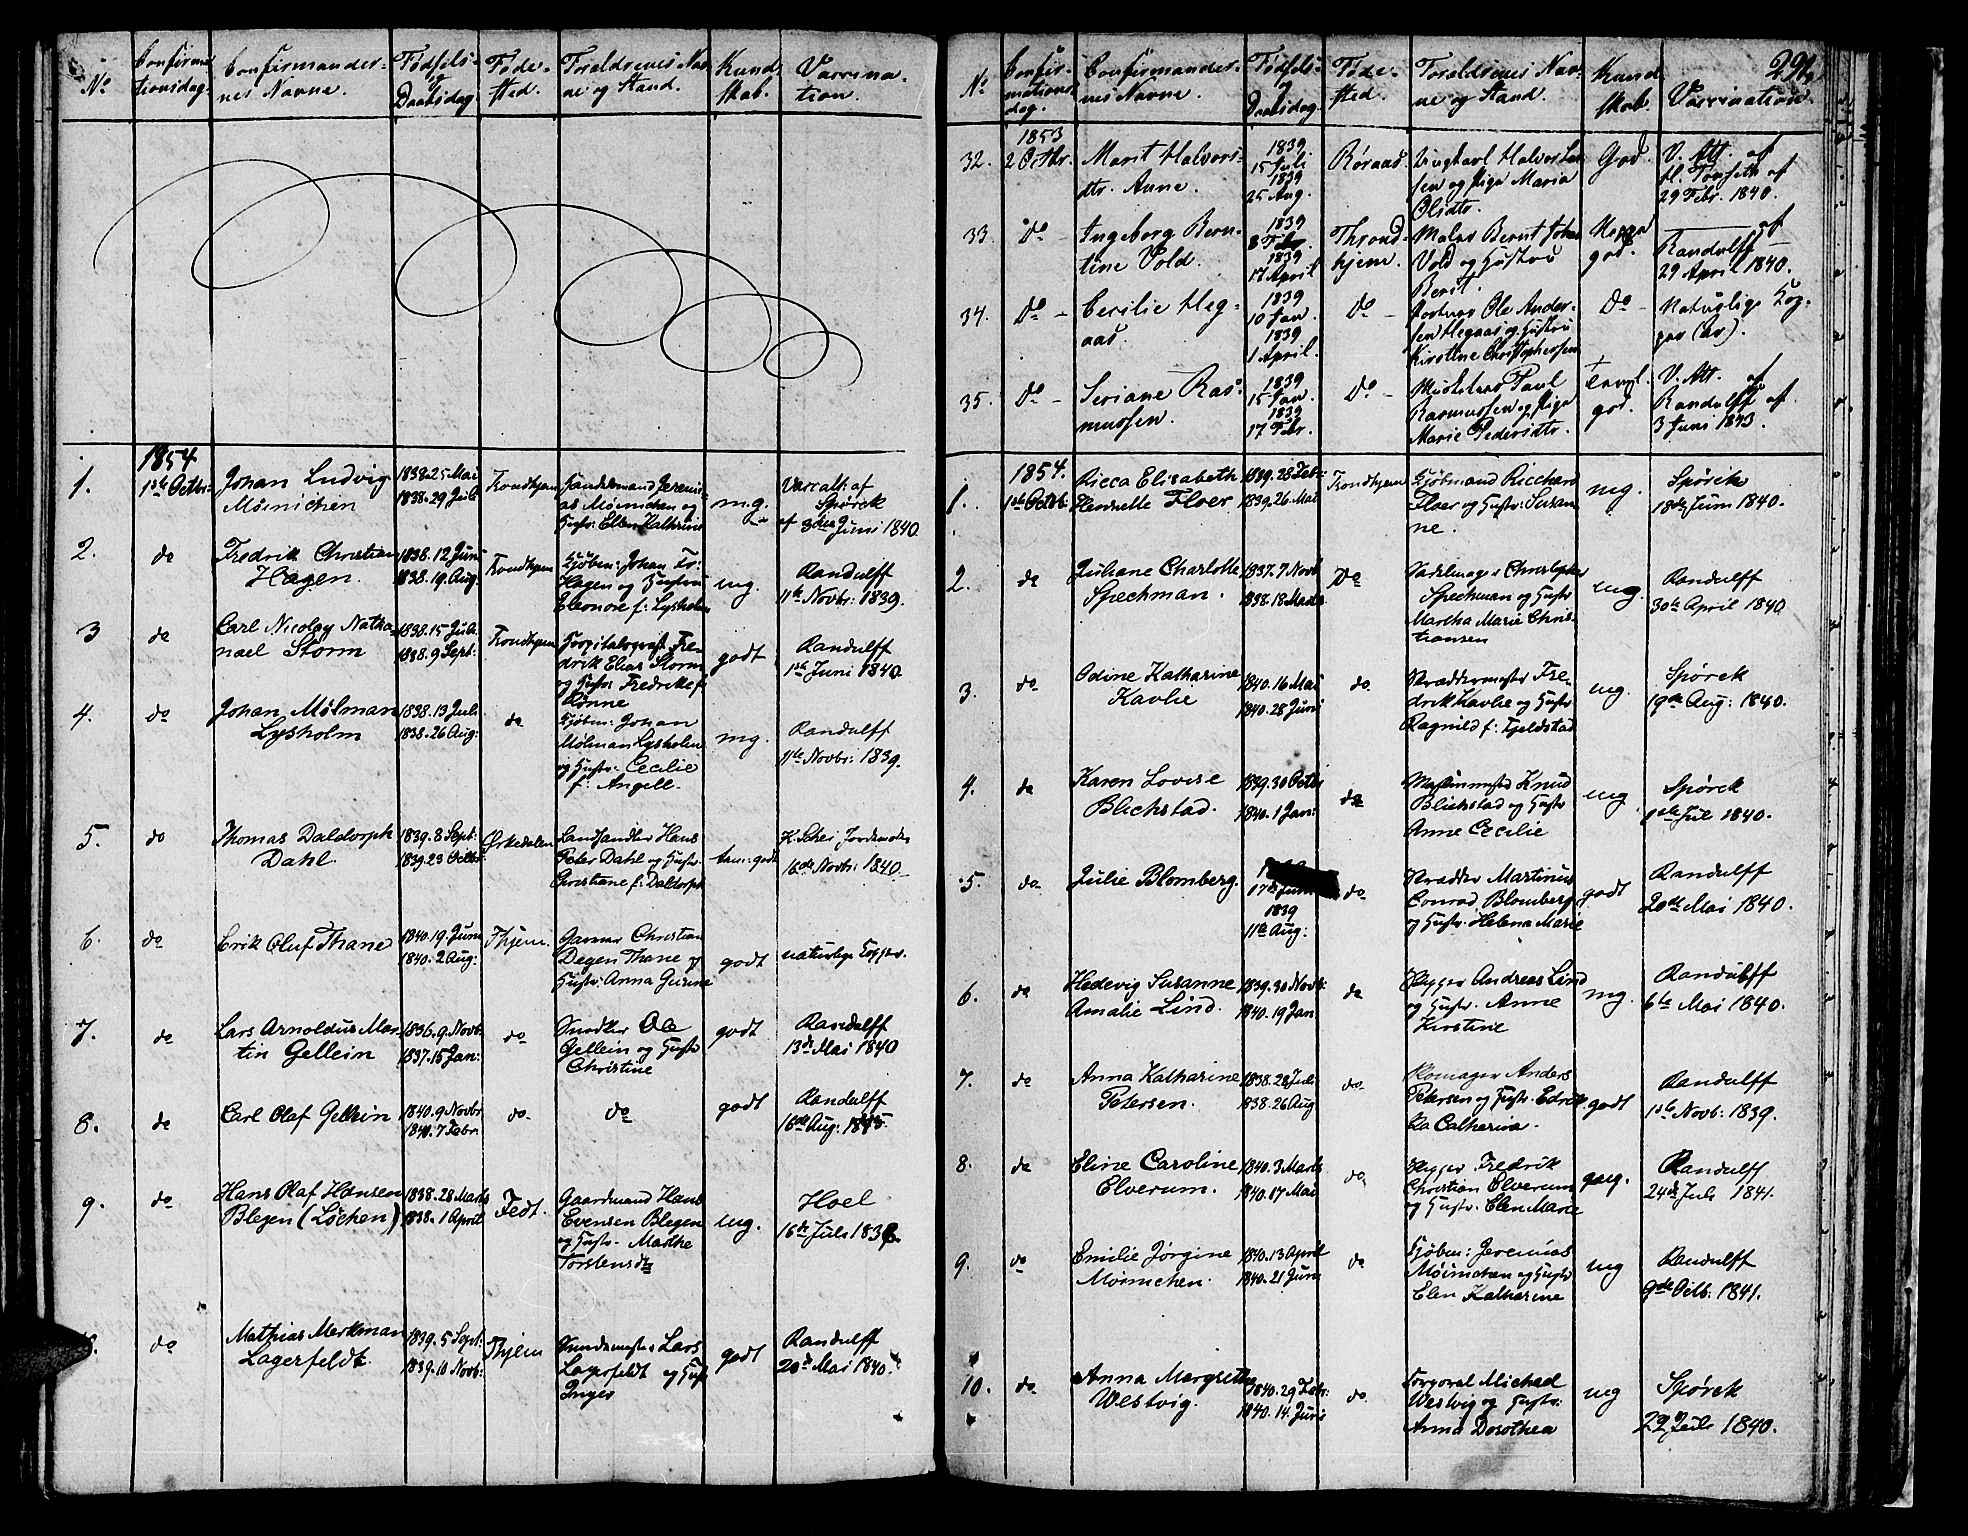 No
Confirma-
tionsdag.
Confirmander-
nes Navne.
Fødsels-
og
Daabsdag.
Føde-
sted.
Foraldrenes Nav-
ne og Stand.
Kund-
skab.
Vaccina-
tion.
1854
1.
1ste Octbr:
Johan Ludvig
Møinichen
1838. 25 Mai
1838. 29 Juli
Trondhjem
Handelsmand Jeremi-
as Møinichen og
Hustr: Ellen Kathrine
mg.
Vaccatt. af
Spørck
af 3die Juni 1840.
2.
do
Fredrik Christian
Hagen.
1838. 12 Juni
1838. 19 Aug:
Trondhjem
Kjøbm: Johan Fr:
Hagen og Hustru
Eleonore f: Lysholm
mg.
Randulff
11te Novbr: 1839.
3
do
Carl Nicolay Natha-
nael Storm
1838. 15 Juli
1838. 9 Sept:
Trondhjem
Hospitalspræst Fre-
drik Elias Storm
og Hustr: Fredrikke f:
Rønne
godt
Randulff
1ste Juni 1840
4.
do
Johan Mølman
Lysholm
1838. 13 Juli
1838. 26 Aug:
do
Kjøbm: Johan
Mølman Lysholm
og Hustr: Cecilie
f: Angell.
mg.
Randulff
11te Novbr: 1839.
5.
do
Thomas Daldorph
Dahl.
1839. 8 Sept:
1839. 23 Octbr:
Ørkedalen
Landhandler Hans
Peter Dahl og Hustr.
Christiane f: Daldorph
tem: godt
K. Schei Jordemoder
16de Novbr: 1840.
6.
do
Erik Oluf Thane
1840. 19. Juni
1840. 2 Aug:
Thjem.
Garver Christian
Degen Thane og
Hustr: Anna Gurine
godt
naturlige Kopper.
7.
do
Lars Arnoldus Mar-
tin Gellein
1836. 9. Novbr.
1837. 15 Jan:
do
Snedker Ole
Gellein og Hustr
Christine
godt
Randulff
13de Mai 1840
8.
do
Carl Olaf Gellein
1840. 9 Novbr
1840. 7 Febr:
do
do
godt
Randulff
16de Aug: 1845.
9.
do
Hans Olaf Hansen
Blegen (Løchen)
1838. 28 Marts
1838. 1 April
Fedt.
Gaardmand Hans
Evensen Blegen
og Hustr. Marthe
Torstensdtr
mg.
Hoel
16de Juli 1839.
do
Mathias Merkman
Lagerfeldt.
1839. 5 Sept:
1839. 10 Novbr:
Thjem
Lars
Lagerfeldt og Hustr
Inger
godt
Randulff
20de Mai 1840.
291.
No
Confir-
mations-
dag.
Confirmander-
nes Navne.
Fødsels-
og
Daabsdag.
Føde-
sted.
Foraldrenes Nav-
ne og Stand.
Kund
skab.
Vaccination.
1853
32.
2 Octbr.
Marit Halvors-
dtr. Aune.
1839
15 Juli
1839
25 Aug.
Røraas.
Ungkarl Halvor Lar-
sen og Pige Maria
Olsdtr.
God.
V. Att. af
H. Tonseth af
29 Febr. 1840.
33.
Do -
Ingeborg Bern-
tine Vold.
1839
8 Febr.
1839
17 April
Thrond-
hjem.
Maler Bernt Johan
Vold og Hustru
Berit.
Meget
god.
af
Randulff
29 April 1840.
34.
Do -
Cecilie Heg-
aas
1839
10 Jan.
1839
1 April.
Do -
Ole Ander-
sen Hegaas og Hustru
Kirstine Christophersen
Do -
Naturlige Kop-
per (ar).
35.
Do -
Seriane Ras-
mussen.
1839
15 Jan.
1839
17 Febr.
Do -
Musketeer Paul
Rasmussen og Pige
Marie Pedersdtr.
+
temml.
god.
V. Att. af
Randulff af
3 Juni 1843.
1854.
1.
1ste Octbr:
Ricca Elisabeth
Henriette Floer
1839. 28 Feb:
1839. 26 Mai
Trondhjem
Kjøbmand Richard
Floer og Hustr: Susan-
ne.
mg.
Spørck
18de Juni 1840.
2.
do
Juliane Charlotte
Spechman.
1837. 7 Novb
1838. 18 Marts
Do
Sadelmager Christopher
Spechman og Hustr
Martha Marie Chris-
tiansen
mg.
Randulff
30te April 1840
3.
do
Odine Katharine
Kavlie
1840. 16 Mai
1840. 28 Juni
do.
Skreddermester Fre-
drik Kavlie og Hustr
Ragnild f: Fjeldstad
mg.
Spørck
19de Aug: 1840.
4.
do
Karen Lovise
Blichstad.
1839. 30 Octbr
1840. 1 Jan:
do
Maskinmester Knud
Blichstad og Hustr
Anne Cecilie
mg.
Spørck
1ste Juli 1840.
5.
do
Julie Blomberg.
17de Juni
1839
11te Aug:
do
Skrædder Martinus
Conrad Blomberg
og Hustr. Helena Marie
godt
Randulff
20de Mai 1840.
6.
do
Hedevig Susanne
Amalie Lind.
1839. 30 Novbr:
1840. 19 Jan
do
Bygger Andreas Lind
og Hustr. Anne
Kirstine
mg.
Randulff
6te Mai 1840.
7.
do
Anna Katharine
Petersen.
1838. 28 Juli
1838. 26 Aug
do
Skomager Anders
Petersen og Hustr.
Catherina.
godt
Randulff
1ste Novb: 1839.
8.
do
Eline Caroline
Elverum.
1840. 3 Marts
1840. 17 Mai
do.
Bygger Fredrik
Christian Elverum
og Hustr. Elen Marie
Randulff
24de Juli 1841.
9.
do
Emilie Jørgine
Møinichen.
1840. 13 April
1840. 21 Juni
do
Kjøbm: Jeremias
Møinichen og Hustr
Elen Katharine
mg
Randulff
9de Octb: 1841.
10.
do
Anna Margrethe
Westvig.
1840. 29 Febr:
1840. 14. Juni
do.
Corporal Michael
Westvig og Hustr:
Anna Dorothea
mg
Spørck
22 Juli 1840.